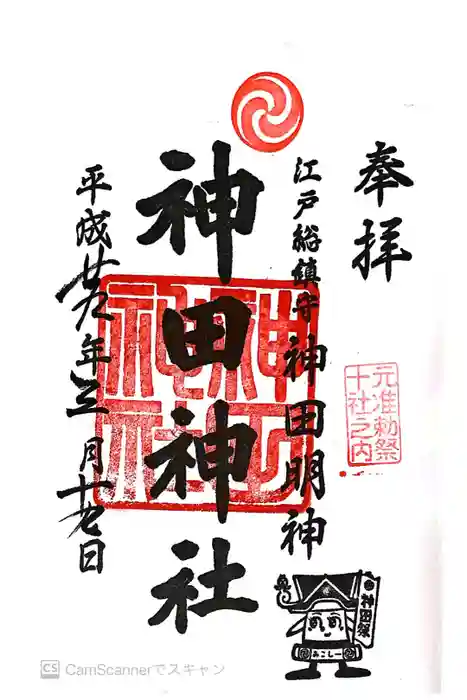 奉拝
元准勅祭
十社之内
江戸総鎮守 神田明神
神田神社
平成廿九年三月十七日
神田祭
みこしー
CS CamScannerでスキャン